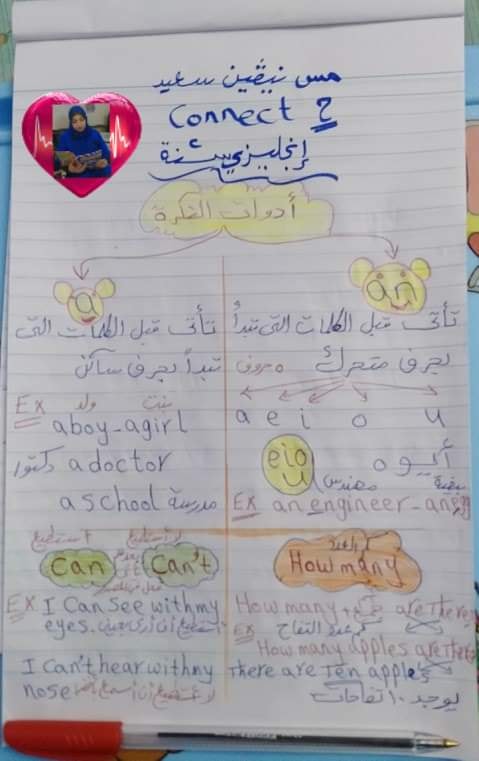 مس نيڤين سعيد
Connect 2
إنجليزي سنة
أدوات النكرة
a
تأتى قبل الكلمات التى
تبدأ بحرف ساكن
Ex بنت ولد
a boy - a girl
a doctor دكتور
a school مدرسة
an
تأتى قبل الكلمات التى تبدأ
بحرف متحرك ٥ حروف
a e i o u
أ
eio
u
مهندس بيضة
Ex an engineer - an egg
أستطيع لا أستطيع
Can Can't
Ex I Can See with my
eyes. أستطيع أن أرى
I Can't hear with my
nose لا أستطيع أن أسمع
How many
How many + جمع are There
Ex كم عدد التفاح
How many apples are There
There are Ten apples
يوجد ١٠ تفاحات